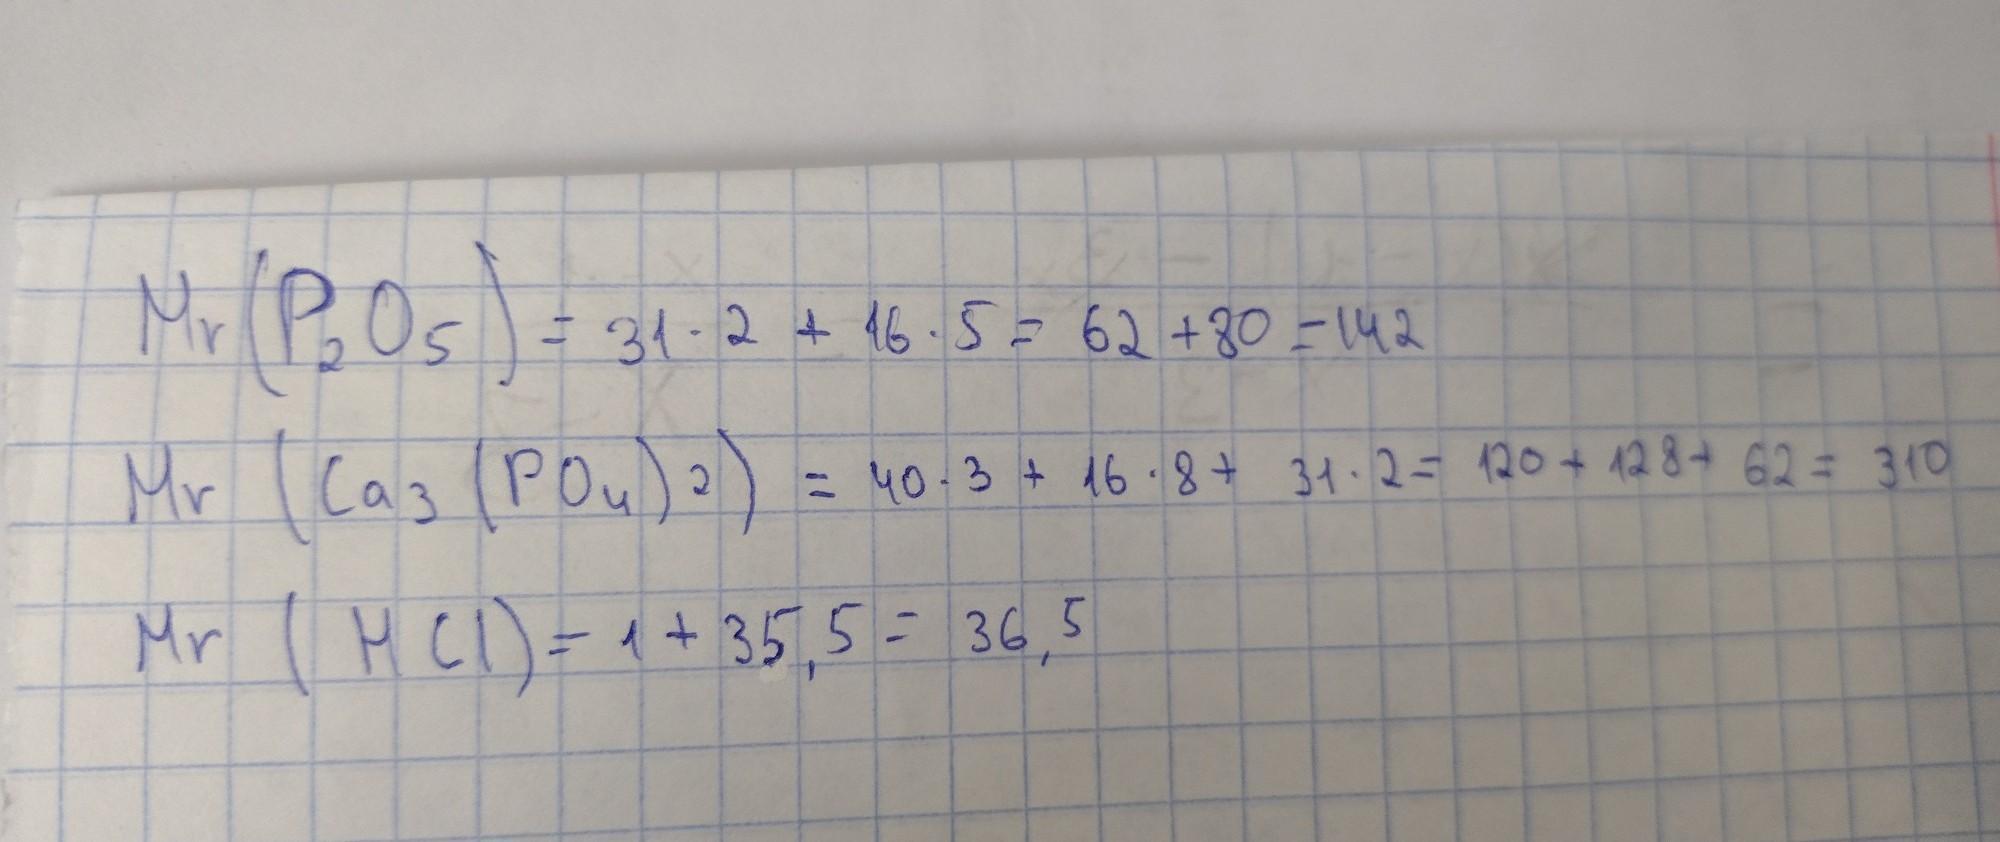 Mr(P₂O₅) = 31·2 + 16·5 = 62+80=142
Mr (Ca₃(PO₄)₂) = 40·3 + 16·8+ 31·2= 120+128+ 62= 310
Mr (HCl)=1+35,5= 36,5